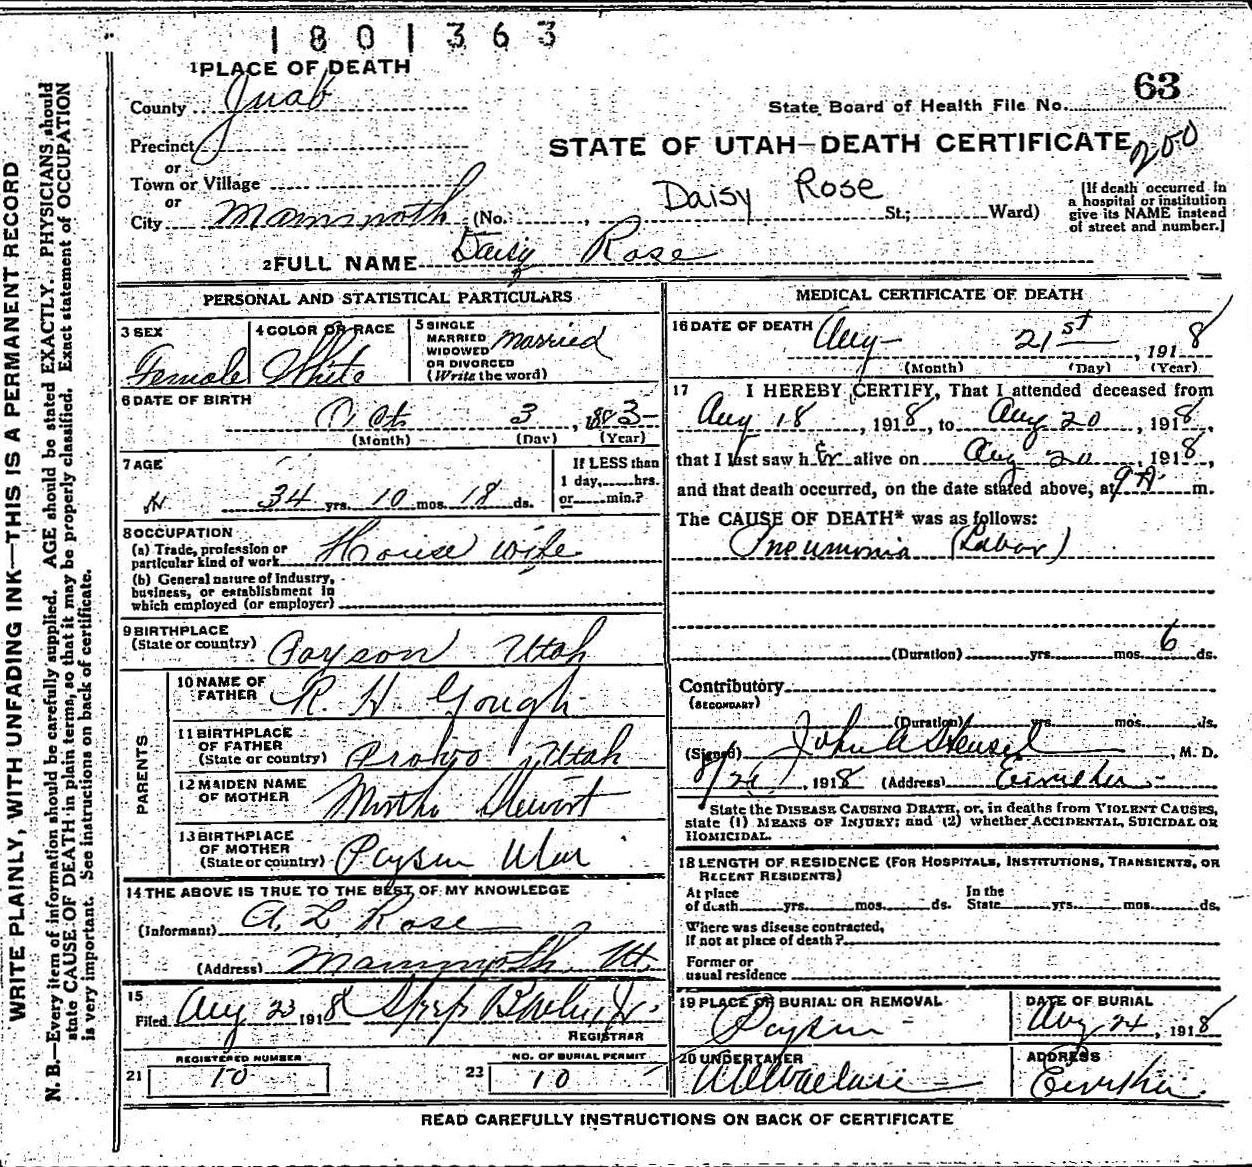 1801363
1 PLACE OF DEATH
County Juab
63
State Board of Health File No.
Precinct
STATE OF UTAH—DEATH CERTIFICATE
200
or
Town or Village
or
City Mammoth (No. , St.; Ward)
Daisy Rose
[If death occurred in
a hospital or institution
give its NAME instead
of street and number.]
2 FULL NAME Daisy Rose
PERSONAL AND STATISTICAL PARTICULARS
3 SEX
Female
4 COLOR OR RACE
White
5 SINGLE
MARRIED
WIDOWED
OR DIVORCED
(Write the word)
Married
6 DATE OF BIRTH
Oct 3, 1883
(Month) (Day) (Year)
7 AGE
34 yrs. 10 mos. 18 ds.
If LESS than
1 day,......hrs.
or......min.?
8 OCCUPATION
(a) Trade, profession or
particular kind of work House wife
(b) General nature of Industry,
business, or establishment in
which employed (or employer)
9 BIRTHPLACE
(State or country) Payson Utah
PARENTS
10 NAME OF
FATHER R. H. Gough
11 BIRTHPLACE
OF FATHER
(State or country) Provo Utah
12 MAIDEN NAME
OF MOTHER Stewart
13 BIRTHPLACE
OF MOTHER
(State or country) Payson Utah
14 THE ABOVE IS TRUE TO THE BEST OF MY KNOWLEDGE
(Informant) A. L. Rose
(Address) Mammoth, Ut.
15
Filed Aug 23 1918
REGISTRAR
REGISTERED NUMBER
21 10
NO. OF BURIAL PERMIT
23 10
MEDICAL CERTIFICATE OF DEATH
16 DATE OF DEATH Aug 21st, 1918
(Month) (Day) (Year)
17 I HEREBY CERTIFY, That I attended deceased from
Aug 18, 1918, to Aug 20, 1918,
that I last saw her alive on Aug 20, 1918,
and that death occurred, on the date stated above, at 9 A. m.
The CAUSE OF DEATH* was as follows:
Pneumonia (Labor)
(Duration) yrs. mos. 6 ds.
Contributory
(SECONDARY)
(Duration) yrs. mos. ds.
(Signed) John A Hensel, M. D.
, 1918 (Address) Eureka
State the DISEASE CAUSING DEATH, or, in deaths from VIOLENT CAUSES,
state (1) MEANS OF INJURY; and (2) whether ACCIDENTAL, SUICIDAL OR
HOMICIDAL.
18 LENGTH OF RESIDENCE (FOR HOSPITALS, INSTITUTIONS, TRANSIENTS, OR
RECENT RESIDENTS)
At place
of death yrs. mos. ds.
In the
State yrs. mos. ds.
Where was disease contracted,
if not at place of death?
Former or
usual residence
19 PLACE OF BURIAL OR REMOVAL
Payson
DATE OF BURIAL
Aug 24, 1918
20 UNDERTAKER
ADDRESS
Eureka
READ CAREFULLY INSTRUCTIONS ON BACK OF CERTIFICATE
WRITE PLAINLY, WITH UNFADING INK—THIS IS A PERMANENT RECORD
N. B.—Every item of information should be carefully supplied. AGE should be stated EXACTLY. PHYSICIANS should
state CAUSE OF DEATH in plain terms, so that it may be properly classified. Exact statement of OCCUPATION
is very important. See instructions on back of certificate.